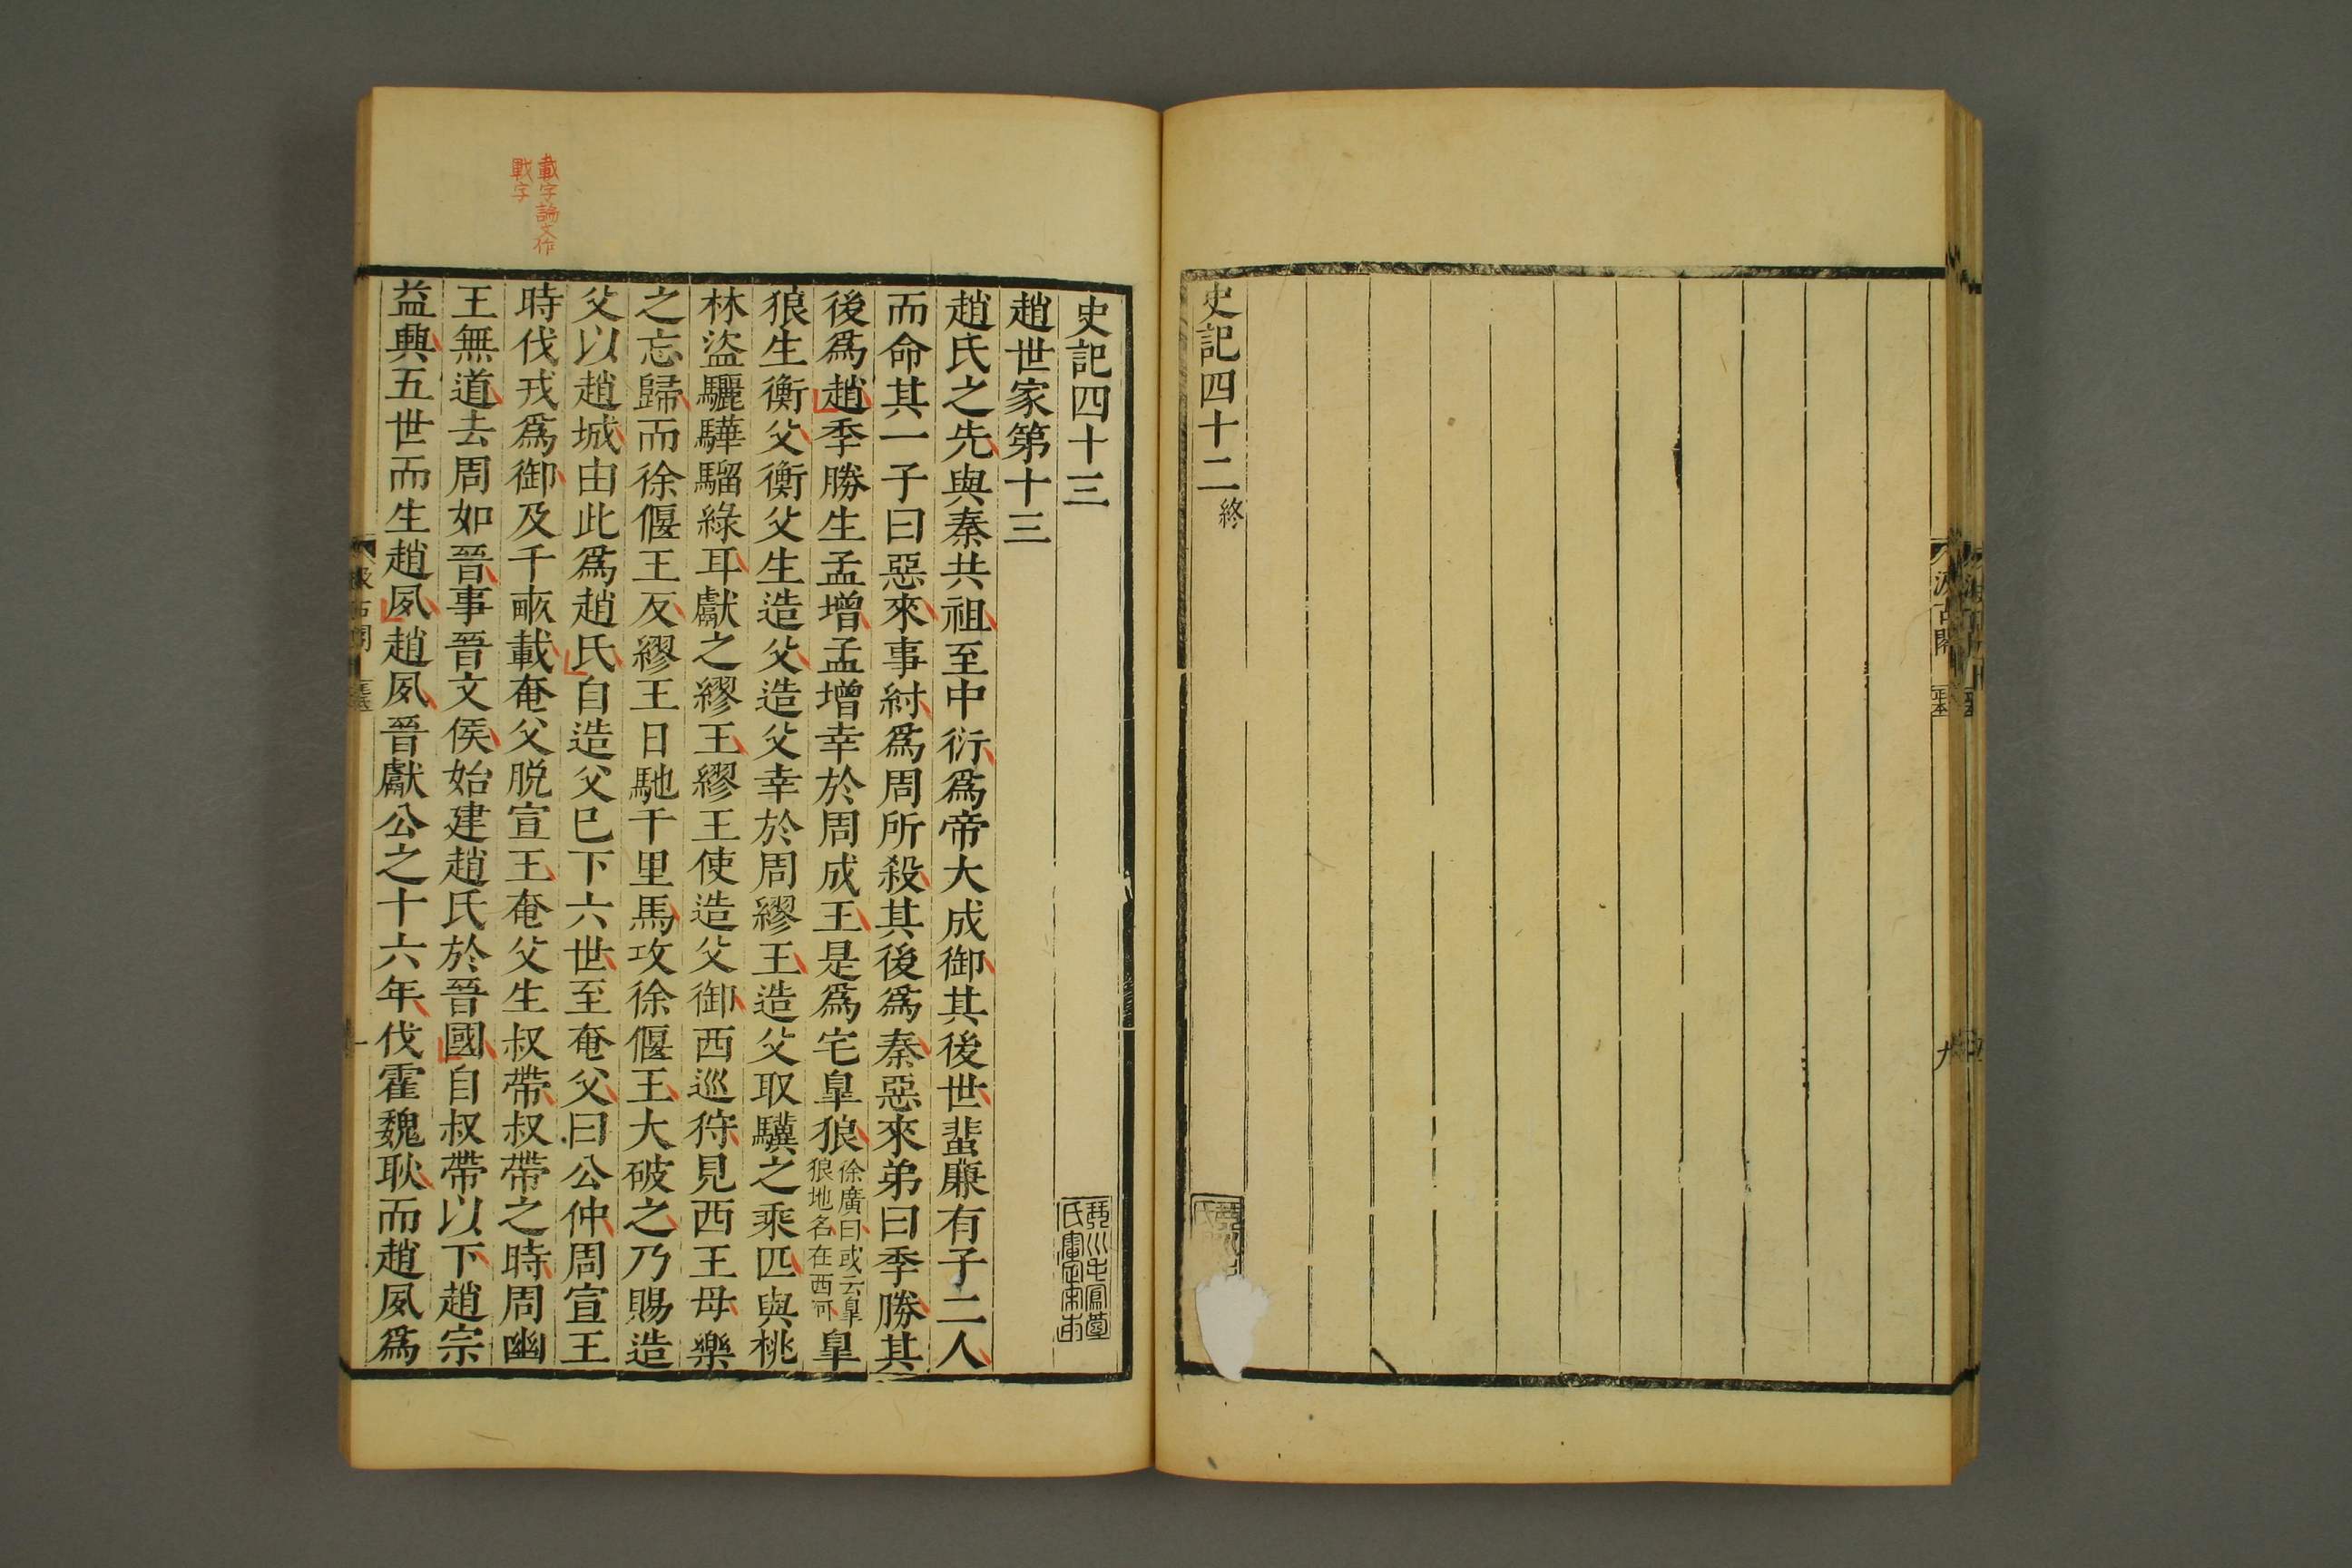 史記四十二終
史記四十三
趙世家第十三
趙氏之先與秦共祖至中衍爲帝大戊御其後世蜚廉有子二人
而命其一子曰惡來事紂爲周所殺其後爲秦惡來弟曰季勝其
後爲趙季勝生孟增孟增幸於周成王是爲宅皐狼徐廣曰或云皐狼地名在西河皐
狼生衡父衡父生造父造父幸於周繆王造父取驥之乘匹與桃
林盜驪驊騮綠耳獻之繆王繆王使造父御西巡狩見西王母樂
之忘歸而徐偃王反繆王日馳千里馬攻徐偃王大破之乃賜造
父以趙城由此爲趙氏自造父已下六世至奄父曰公仲周宣王
時伐戎爲御及千畝載奄父脫宣王奄父生叔帶叔帶之時周幽
王無道去周如晉事晉文侯始建趙氏於晉國自叔帶以下趙宗
益興五世而生趙夙趙夙晉獻公之十六年伐霍魏耿而趙夙爲
載字論文作
戰字
汲古閣
九